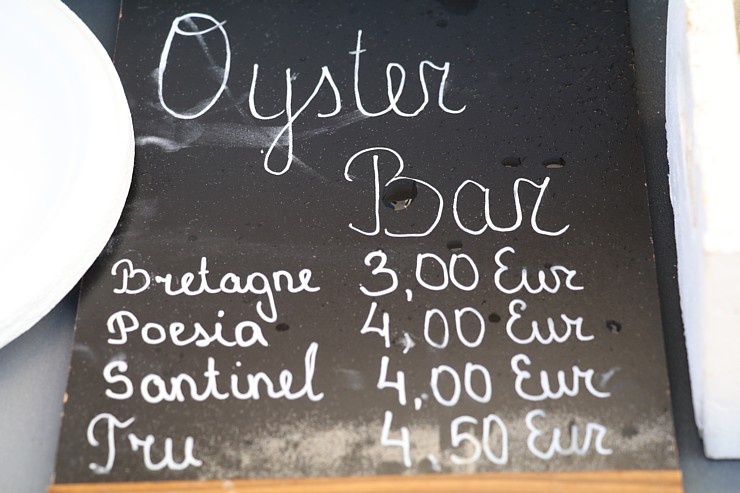 Oyster
Bar
Bretagne 3,00 Eur
Poesia 4,00 Eur
Santinel 4,00 Eur
Tru 4,50 Eur